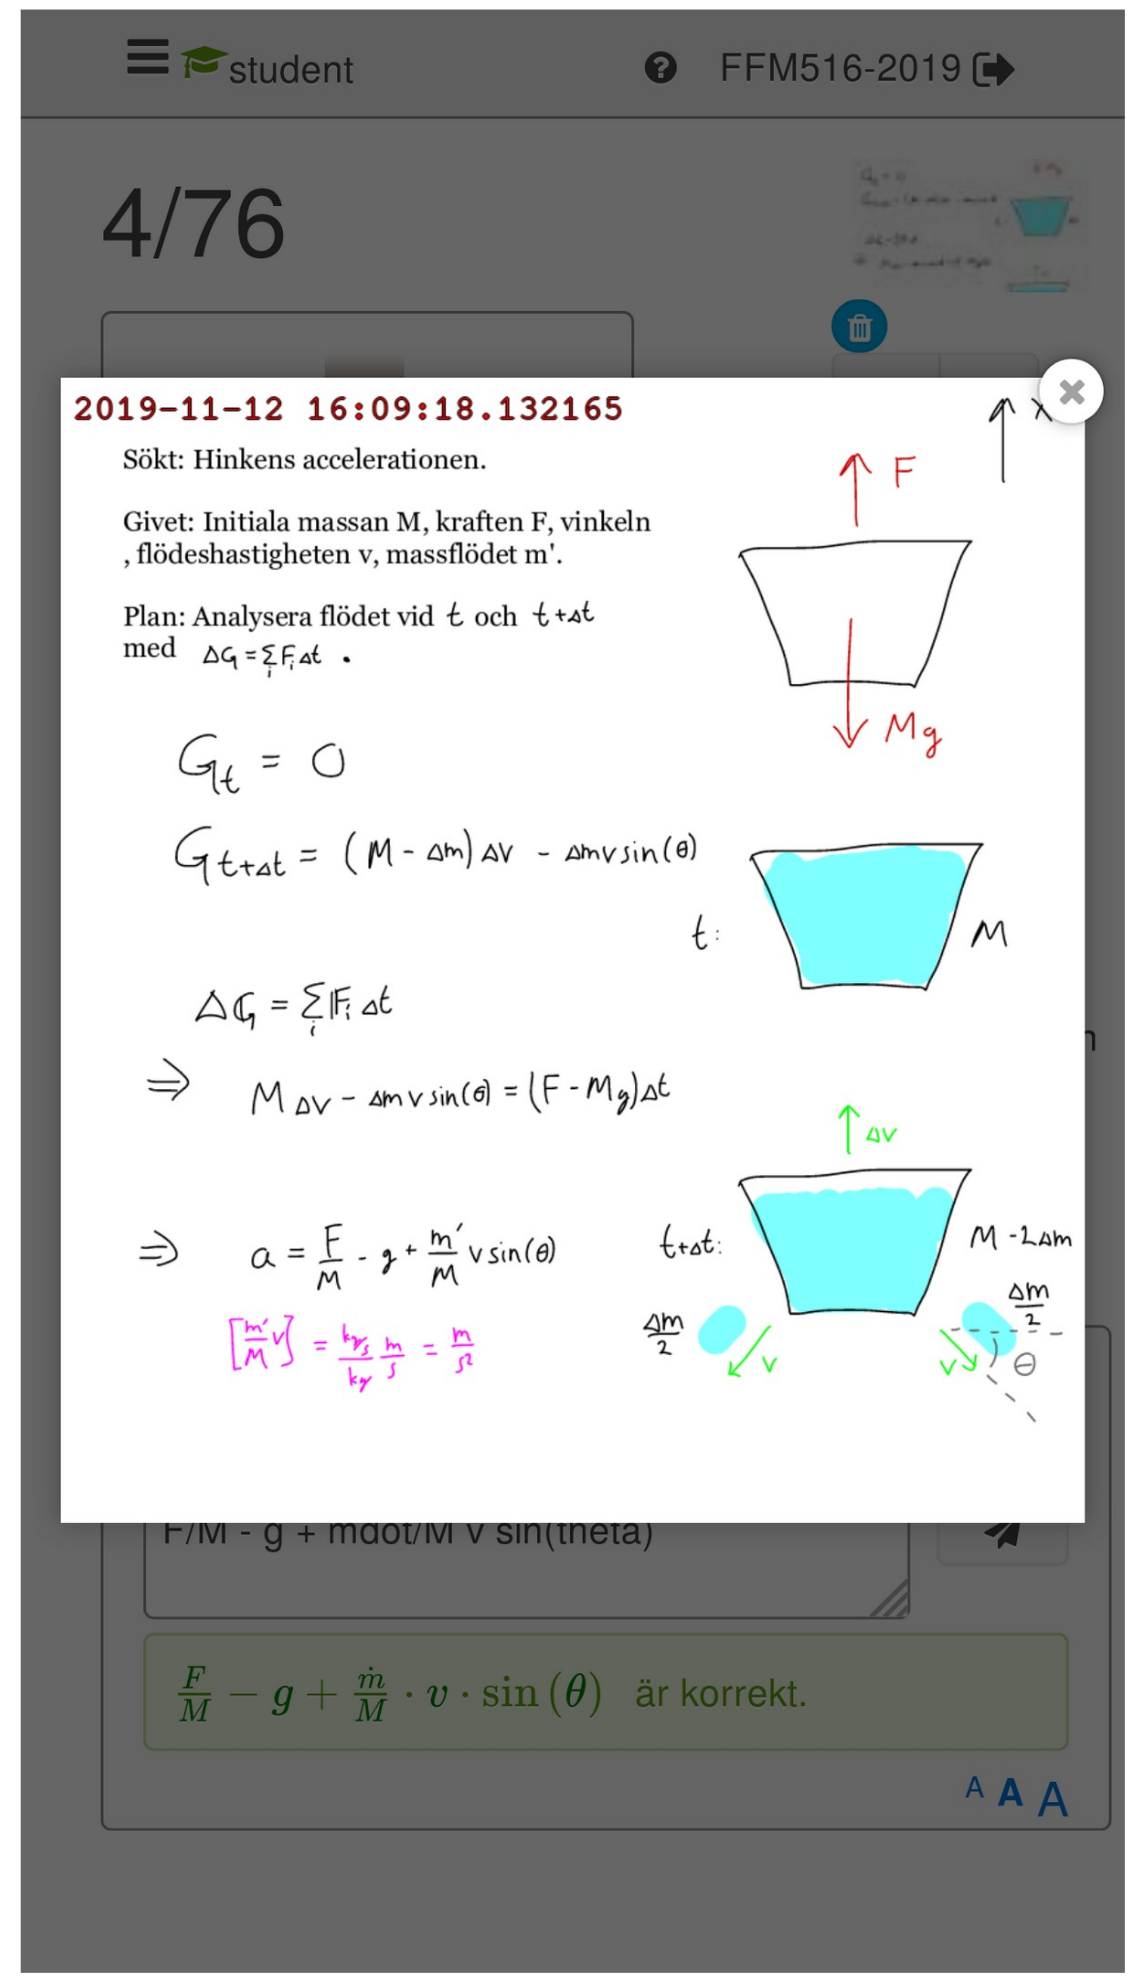 student
FFM516-2019
4/76
2019-11-12 16:09:18.132165
x
Sökt: Hinkens accelerationen.
F
Givet: Initiala massan M, kraften F, vinkeln
, flödeshastigheten v, massflödet m'.
Plan: Analysera flödet vid t och t+Δt
med ΔG = Σ_i F_i Δt .
Mg
G_t = 0
G_{t+Δt} = (M - Δm) Δv - Δmvsin(θ)
t:
M
ΔG = Σ_i F_i Δt
⇒ M Δv - Δm v sin(θ) = (F - Mg)Δt
Δv
⇒ a = F/M - g + m'/M v sin(θ)
t+Δt:
M - 2Δm
[m'/M v] = kg/s/kg m/s = m/s²
Δm/2
v
Δm/2
v
θ
F/M - g + mdot/M v sin(theta)
F/M − g + ṁ/M · v · sin (θ) är korrekt.
A A A